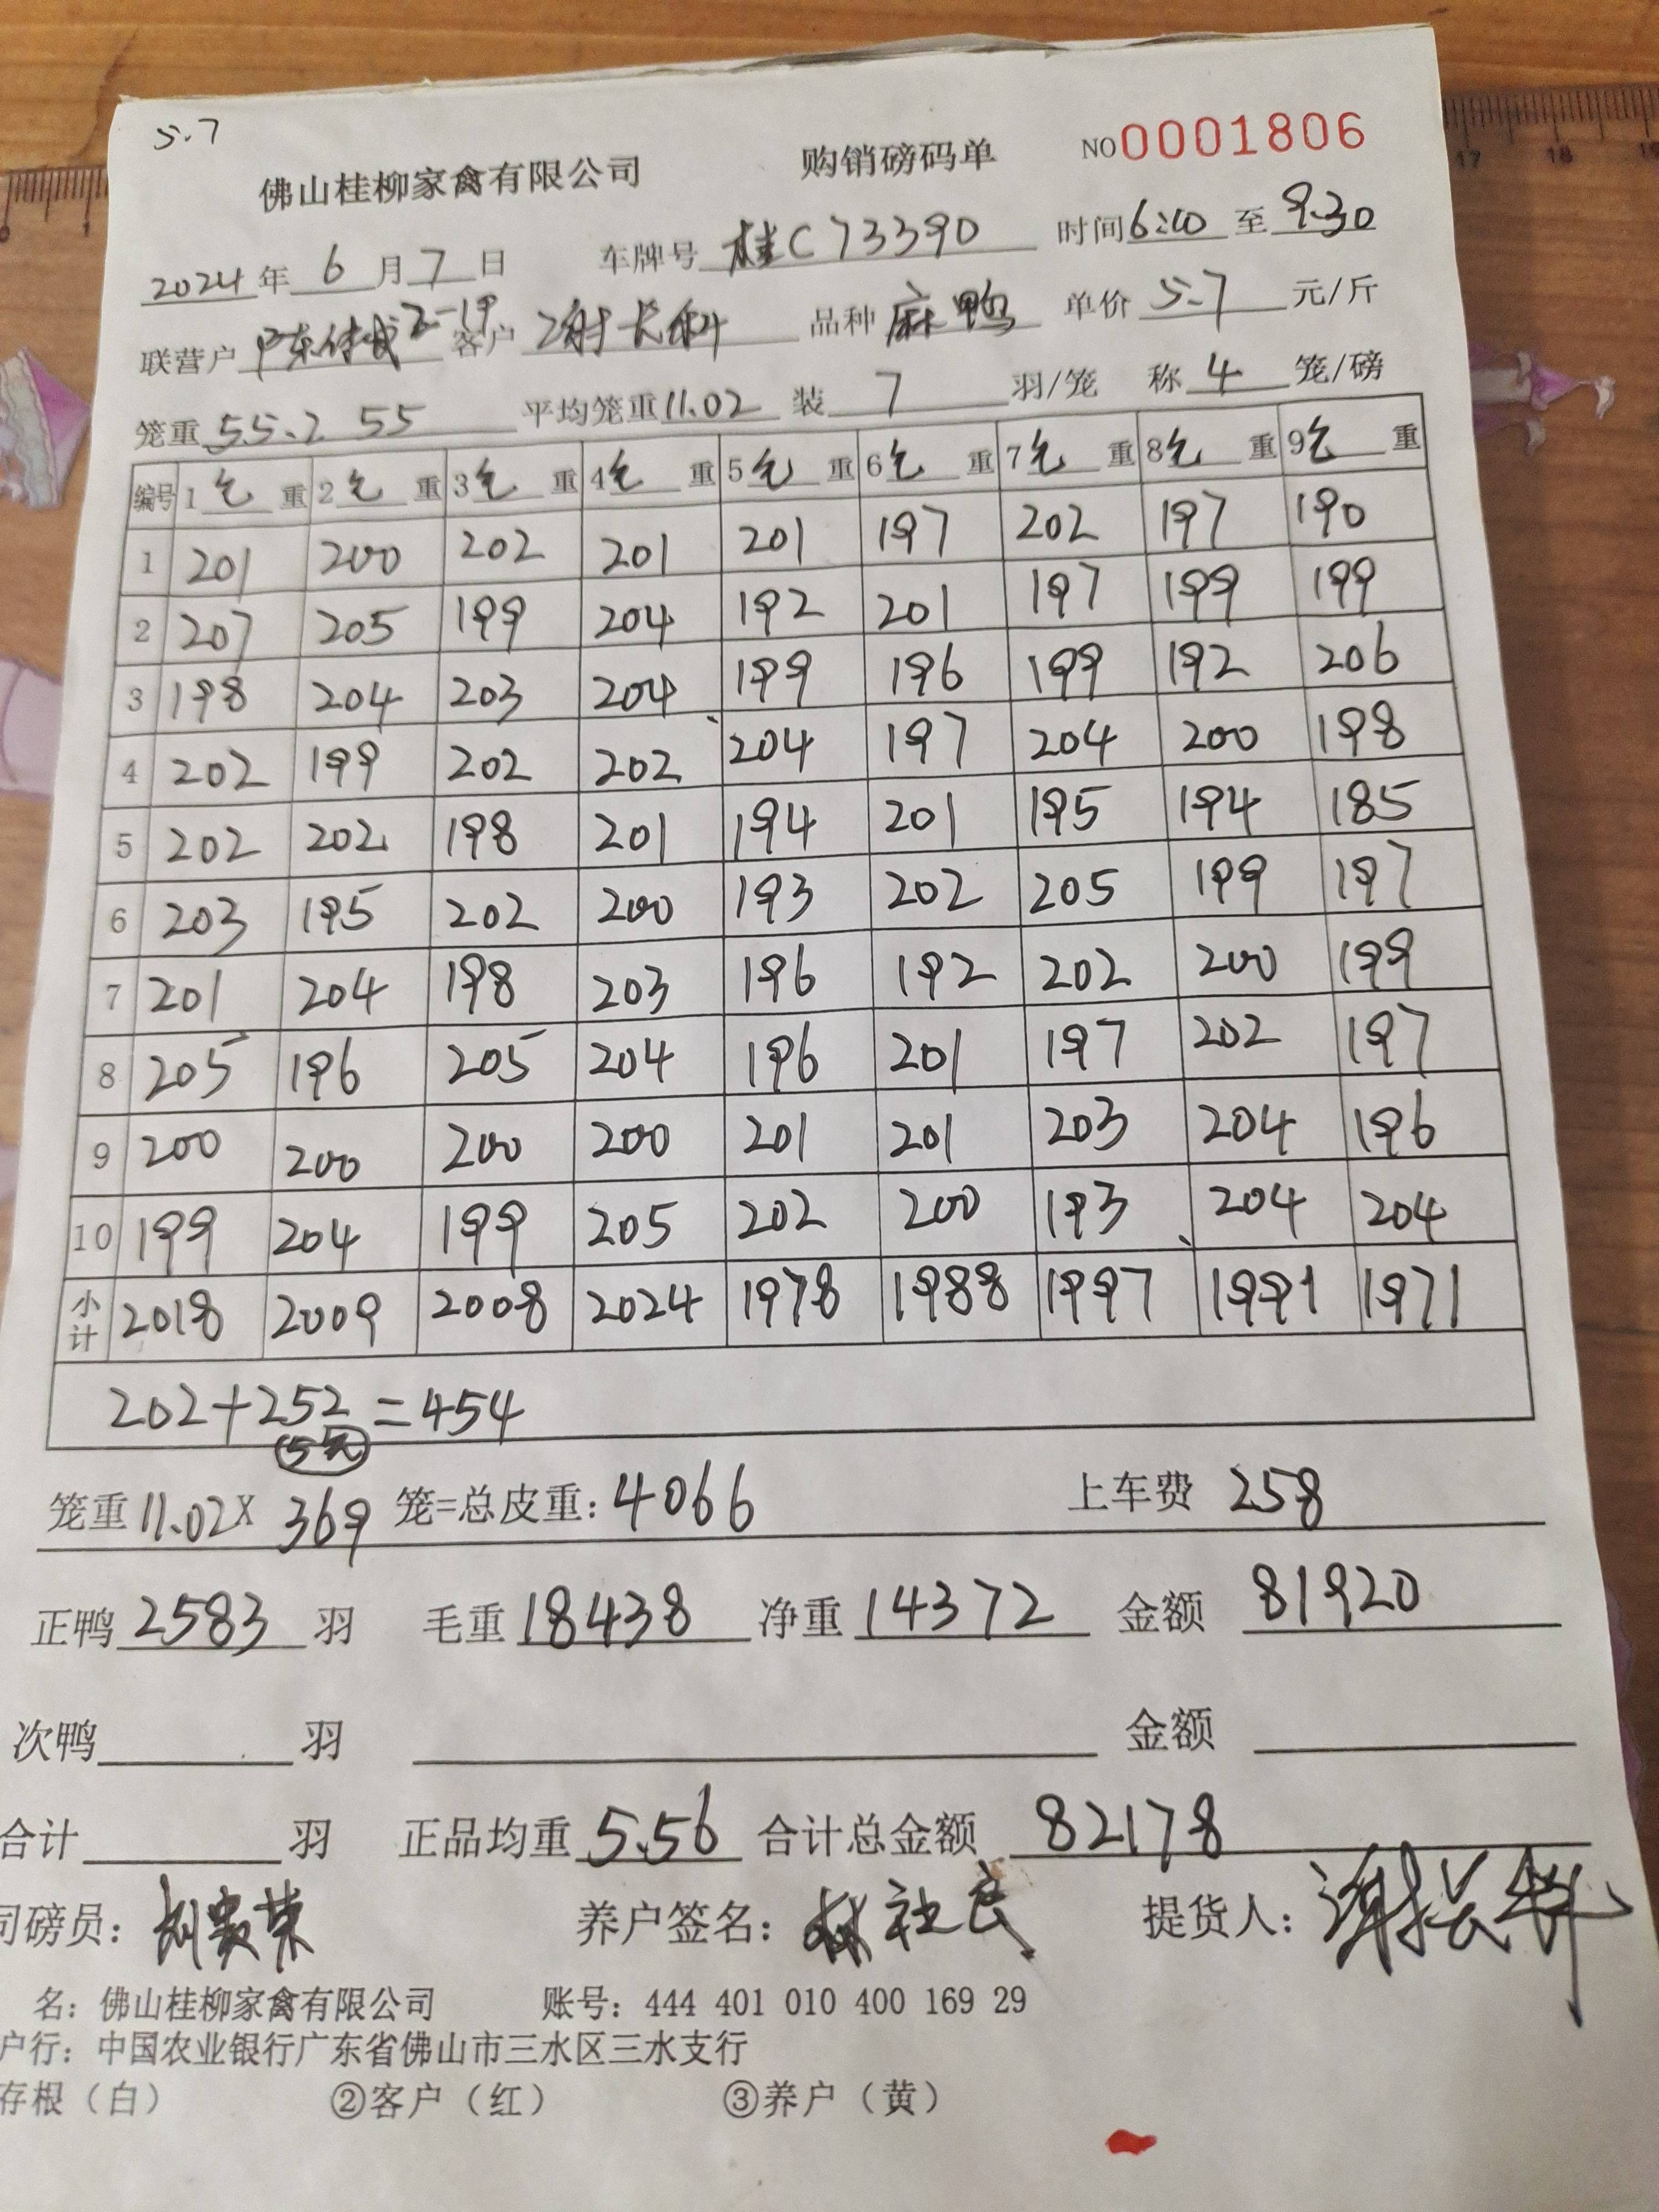 5.7
佛山桂柳家禽有限公司 购销磅码单 NO 0001806
2024年 6 月 7 日 车牌号 桂C73390 时间 6:40 至 9.30
联营户 2-19 客户 谢长科 品种 麻鸭 单价 5.7 元/斤
笼重 55.2 55 平均笼重 11.02 装 7 羽/笼 称 4 笼/磅
编号 1 毛 重 2 毛 重 3 毛 重 4 毛 重 5 毛 重 6 毛 重 7 毛 重 8 毛 重 9 毛 重
1 201 200 202 201 201 197 202 197 190
2 207 205 199 204 192 201 197 199 199
3 198 204 203 204 199 196 199 192 206
4 202 199 202 202 204 197 204 200 198
5 202 202 198 201 194 201 195 194 185
6 203 195 202 200 193 202 205 199 197
7 201 204 198 203 196 192 202 200 199
8 205 196 205 204 196 201 197 202 197
9 200 200 200 200 201 201 203 204 196
10 199 204 199 205 202 200 193 204 204
小计 2018 2009 2008 2024 1978 1988 1997 1991 1971
202+252=454
5元
笼重 11.02X 369 笼=总皮重: 4066 上车费 258
正鸭 2583 羽 毛重 18438 净重 14372 金额 81920
次鸭 羽 金额
合计 羽 正品均重 5.56 合计总金额 82178
司磅员: 养户签名: 林社良 提货人:
名: 佛山桂柳家禽有限公司 账号: 444 401 010 400 169 29
户行: 中国农业银行广东省佛山市三水区三水支行
存根（白） ②客户（红） ③养户（黄）